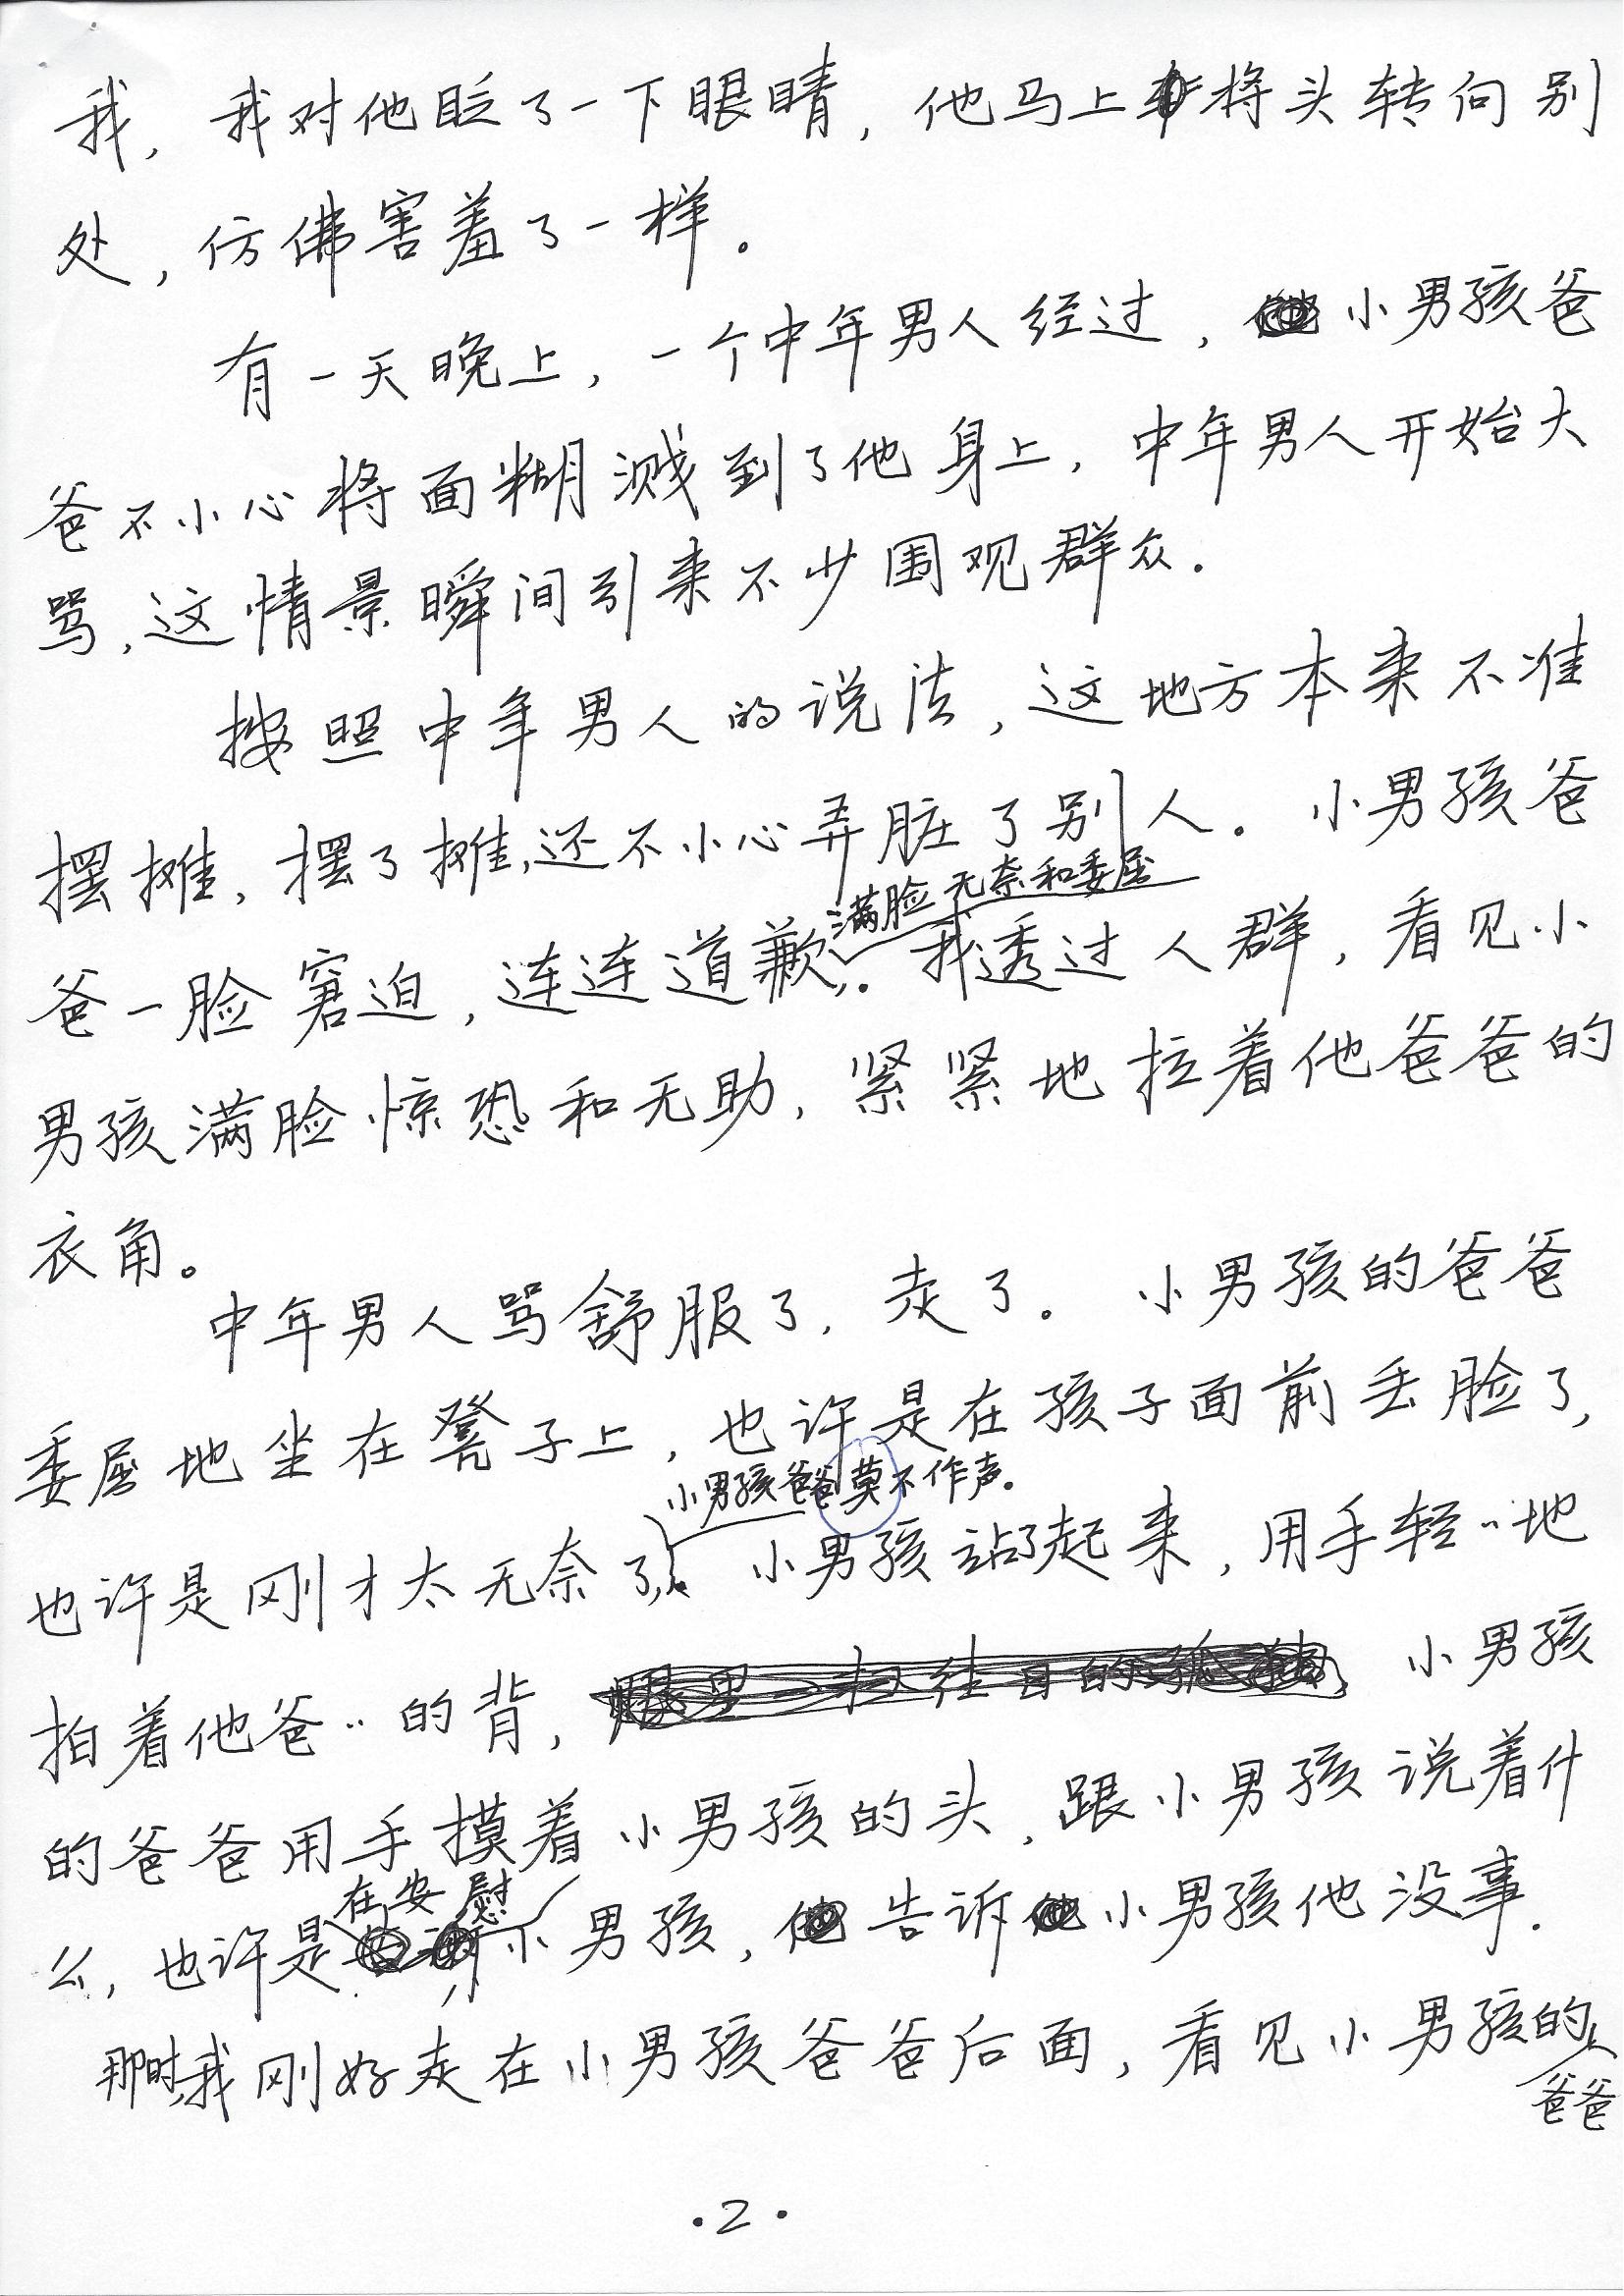 我，我对他眨了一下眼睛，他马上将头转向别
处，仿佛害羞了一样。
有一天晚上，一个中年男人经过，小男孩爸
爸不小心将面糊溅到了他身上，中年男人开始大
骂，这情景瞬间引来不少围观群众。
按照中年男人的说法，这地方本来不准
摆摊，摆了摊，还不小心弄脏了别人。小男孩爸
满脸无奈和委屈
爸一脸窘迫，连连道歉，。我透过人群，看见小
男孩满脸惊恐和无助，紧紧地拉着他爸爸的
衣角。
中年男人骂舒服了，走了。小男孩的爸爸
委屈地坐在凳子上，也许是在孩子面前丢脸了，
小男孩爸爸莫不作声。
也许是刚才太无奈了，。小男孩站了起来，用手轻··地
拍着他爸··的背，小男孩
的爸爸用手摸着小男孩的头，跟小男孩说着什
在安慰
么，也许是小男孩，告诉小男孩他没事。
那时，我刚好走在小男孩爸爸后面，看见小男孩的
爸爸
·2·